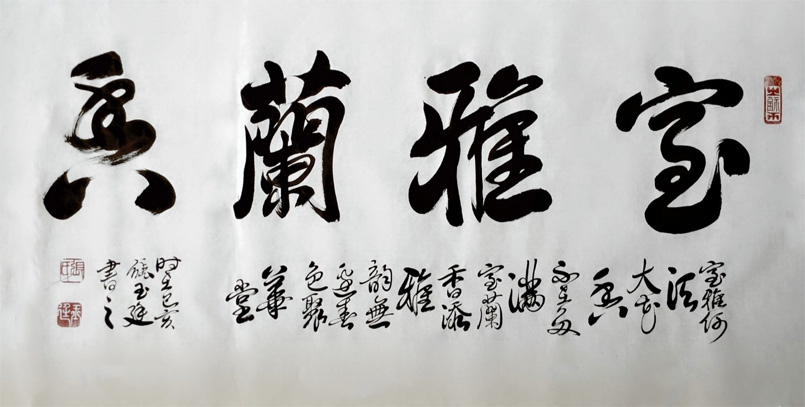 室雅蘭香
室雅何
須
大花
香
不在多
滿
室蘭
香添
雅
韻無
邊春
色聚
華
堂
时在己亥
張玉廷
書之